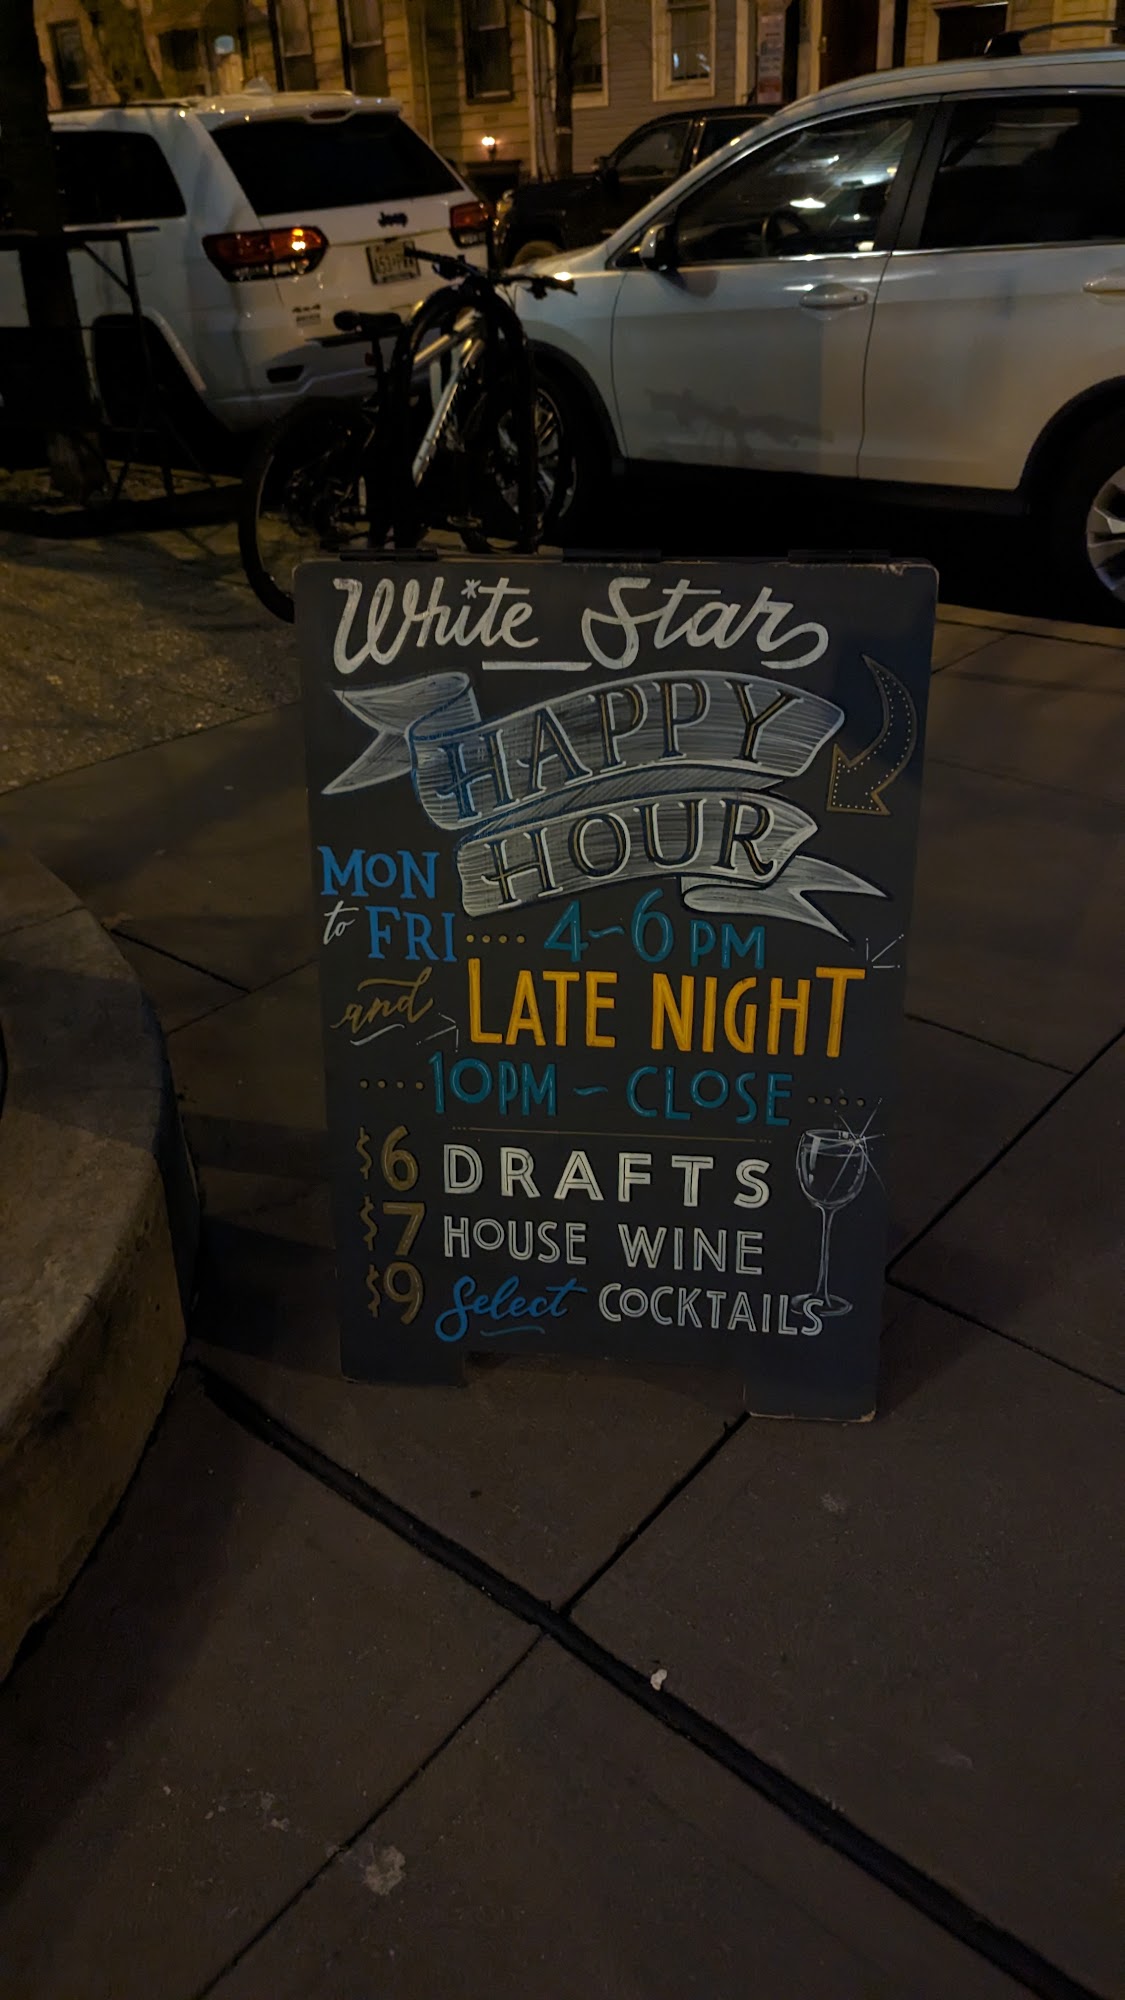 Jeep
4x4
White Star
HAPPY
HOUR
MON
to FRI .... 4~6 PM
and LATE NIGHT
.... 10PM ~ CLOSE ....
$6 DRAFTS
$7 HOUSE WINE
$9 Select COCKTAILS